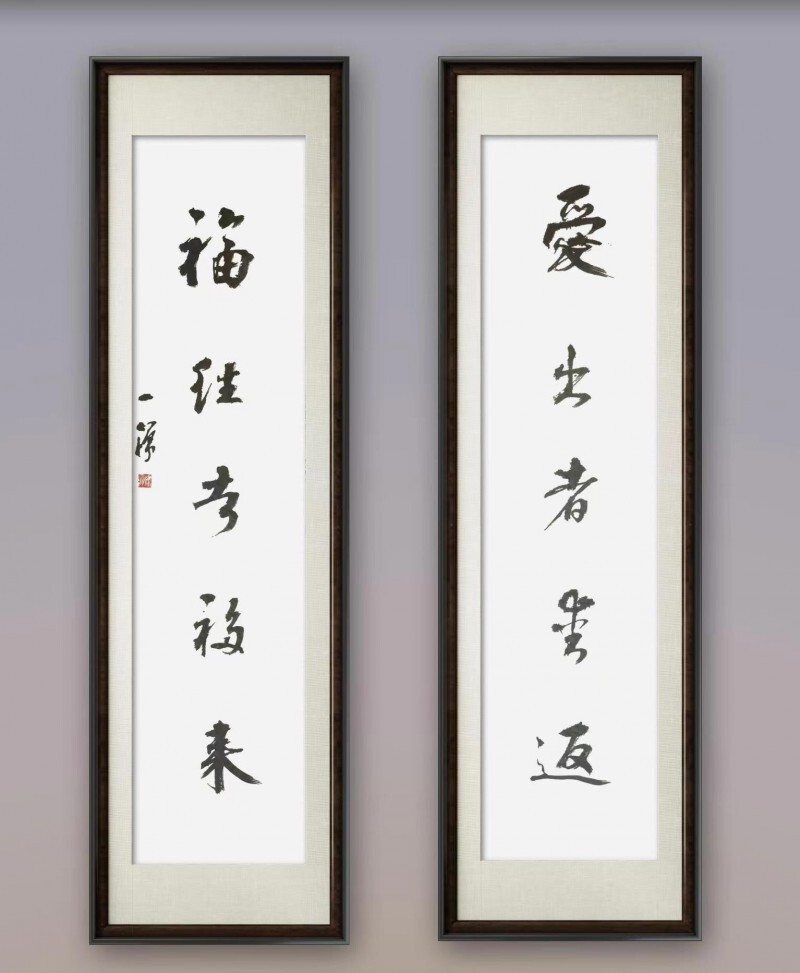 愛出者愛返
福往者福來
一禪